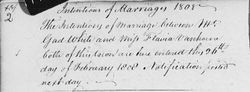 Intentions of Marriages 1808
2 The Intention of Marriage between Mr
Gad White and Miss Flavia Vanhorn
both of this town are here entered this 26th
day of February 1808 Notification posted
next day.